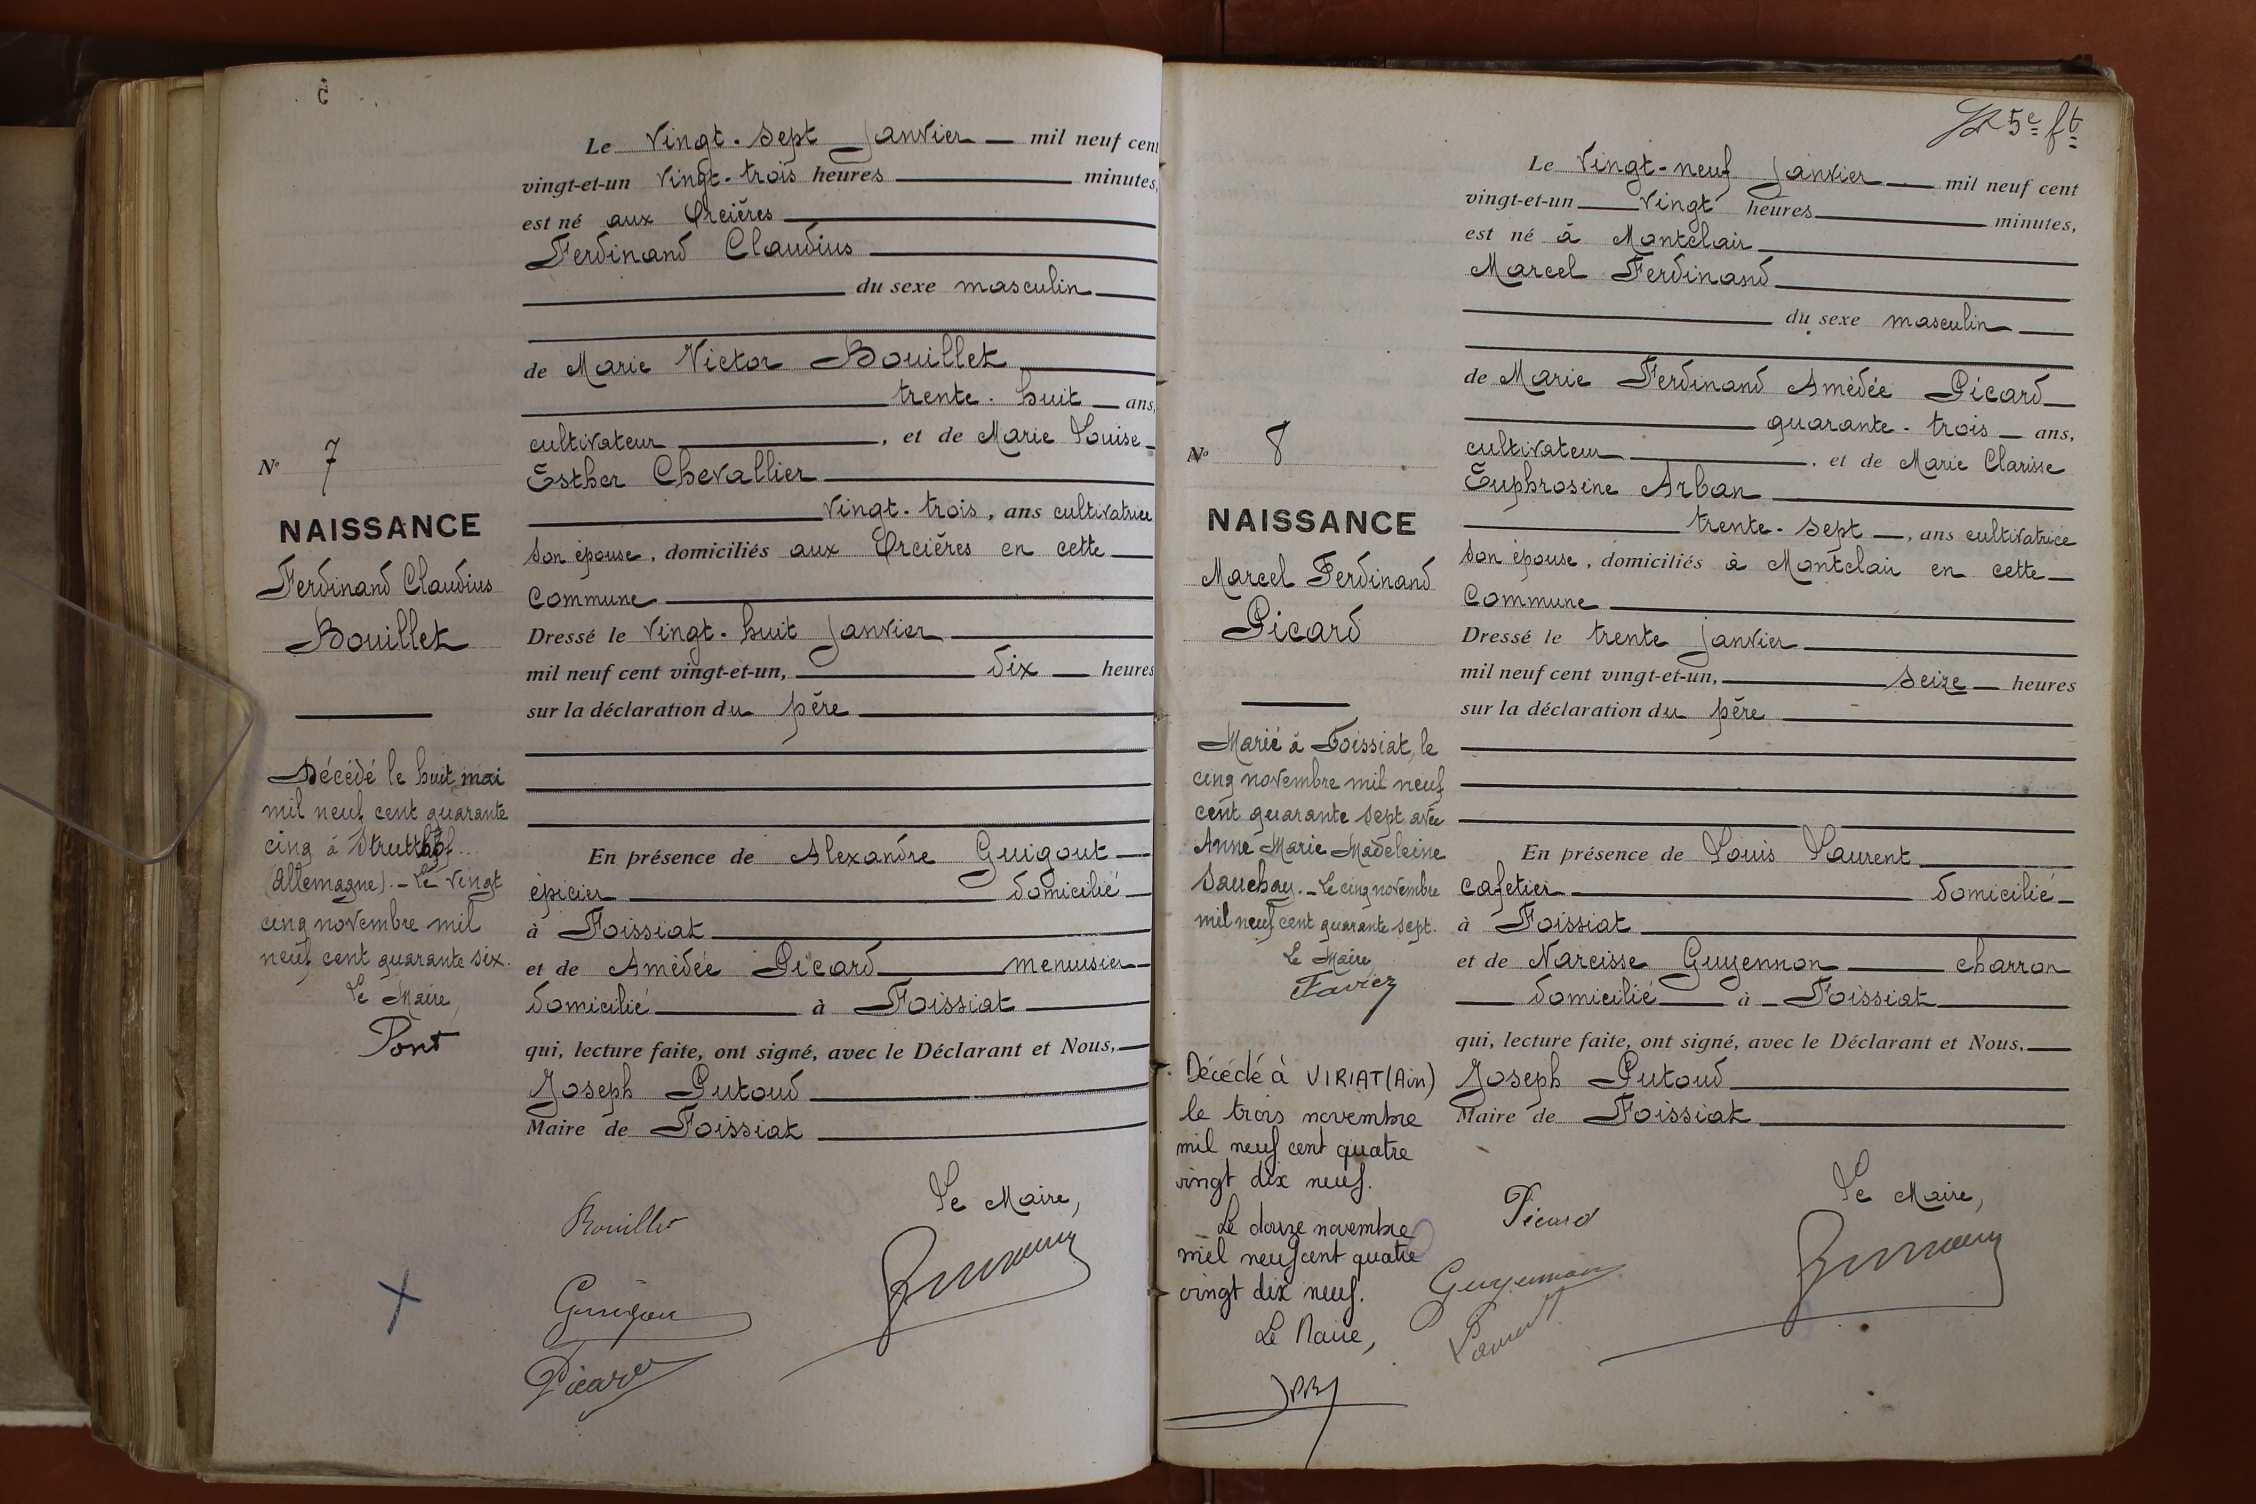 Le Vingt-sept Janvier mil neuf cent
vingt-et-un Vingt-trois heures minutes,
est né aux Orcières
Ferdinand Claudius
du sexe masculin
de Marie Victor Bouillet
trente-huit ans,
cultivateur, et de Marie Louise
Esther Chevallier
Vingt-trois, ans cultivatrice
son épouse, domiciliés aux Orcières en cette
Commune
Dressé le Vingt-huit Janvier
mil neuf cent vingt-et-un, dix heures
sur la déclaration du père
En présence de Alexandre Guigout
épicier domicilié
à Foissiat
et de Amédée Picard menuisier
domicilié à Foissiat
qui, lecture faite, ont signé, avec le Déclarant et Nous,
Joseph Putoud
Maire de Foissiat
Le Maire,
N° 7
NAISSANCE
Ferdinand Claudius
Bouillet
Décédé le huit mai
mil neuf cent quarante
cinq à Struthof
(Allemagne). - Le vingt
cinq novembre mil
neuf cent quarante six.
Le Maire,
Pont
Bouillet
Guigou
Picard
5e ft
Le Vingt-neuf Janvier mil neuf cent
vingt-et-un Vingt heures minutes,
est né à Montclair
Marcel Ferdinand
du sexe masculin
de Marie Ferdinand Amédée Picard
quarante-trois ans,
cultivateur, et de Marie Clarisse
Euphrosine Arban
trente-sept, ans cultivatrice
son épouse, domiciliés à Montclair en cette
Commune
Dressé le trente Janvier
mil neuf cent vingt-et-un, seize heures
sur la déclaration du père
En présence de Louis Laurent
cafetier domicilié
à Foissiat
et de Narcisse Guyennon charron
domicilié à Foissiat
qui, lecture faite, ont signé, avec le Déclarant et Nous,
Joseph Putoud
Maire de Foissiat
Le Maire,
N° 8
NAISSANCE
Marcel Ferdinand
Picard
Marié à Foissiat, le
cinq novembre mil neuf
cent quarante sept avec
Anne Marie Madeleine
Sauchay. - Le cinq novembre
mil neuf cent quarante sept.
Le Maire
Favier
Décédé à VIRIAT (Ain)
le trois novembre
mil neuf cent quatre
vingt dix neuf.
Le douze novembre
mil neuf cent quatre
vingt dix neuf.
Le Maire,
Picard
Guyennon
Laurent